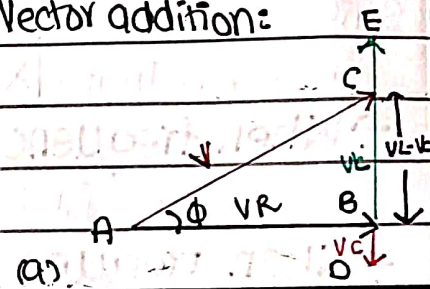 Vector addition:
E
C
V
VL
VL-VC
A
ϕ
VR
B
VC
D
(a)